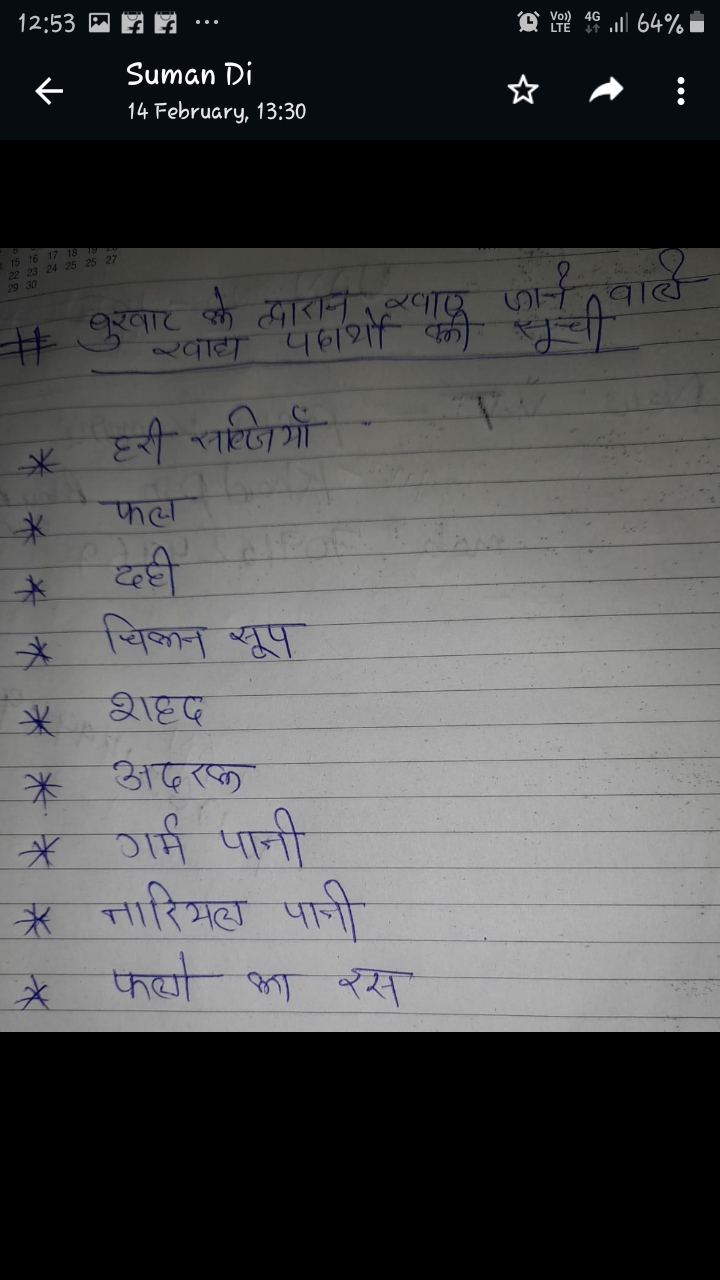 12:53 ... Vo) LTE 4G 64%
Suman Di
14 February, 13:30
15 16 17 18 19
22 23 24 25 25 27
29 30
# बुखार के दौरान खाए जाने वाले
खाद्य पदार्थों की सूची
* हरी सब्जियाँ
* फल
* दही
* चिकन सूप
* शहद
* अदरक
* गर्म पानी
* नारियल पानी
* फलो का रस